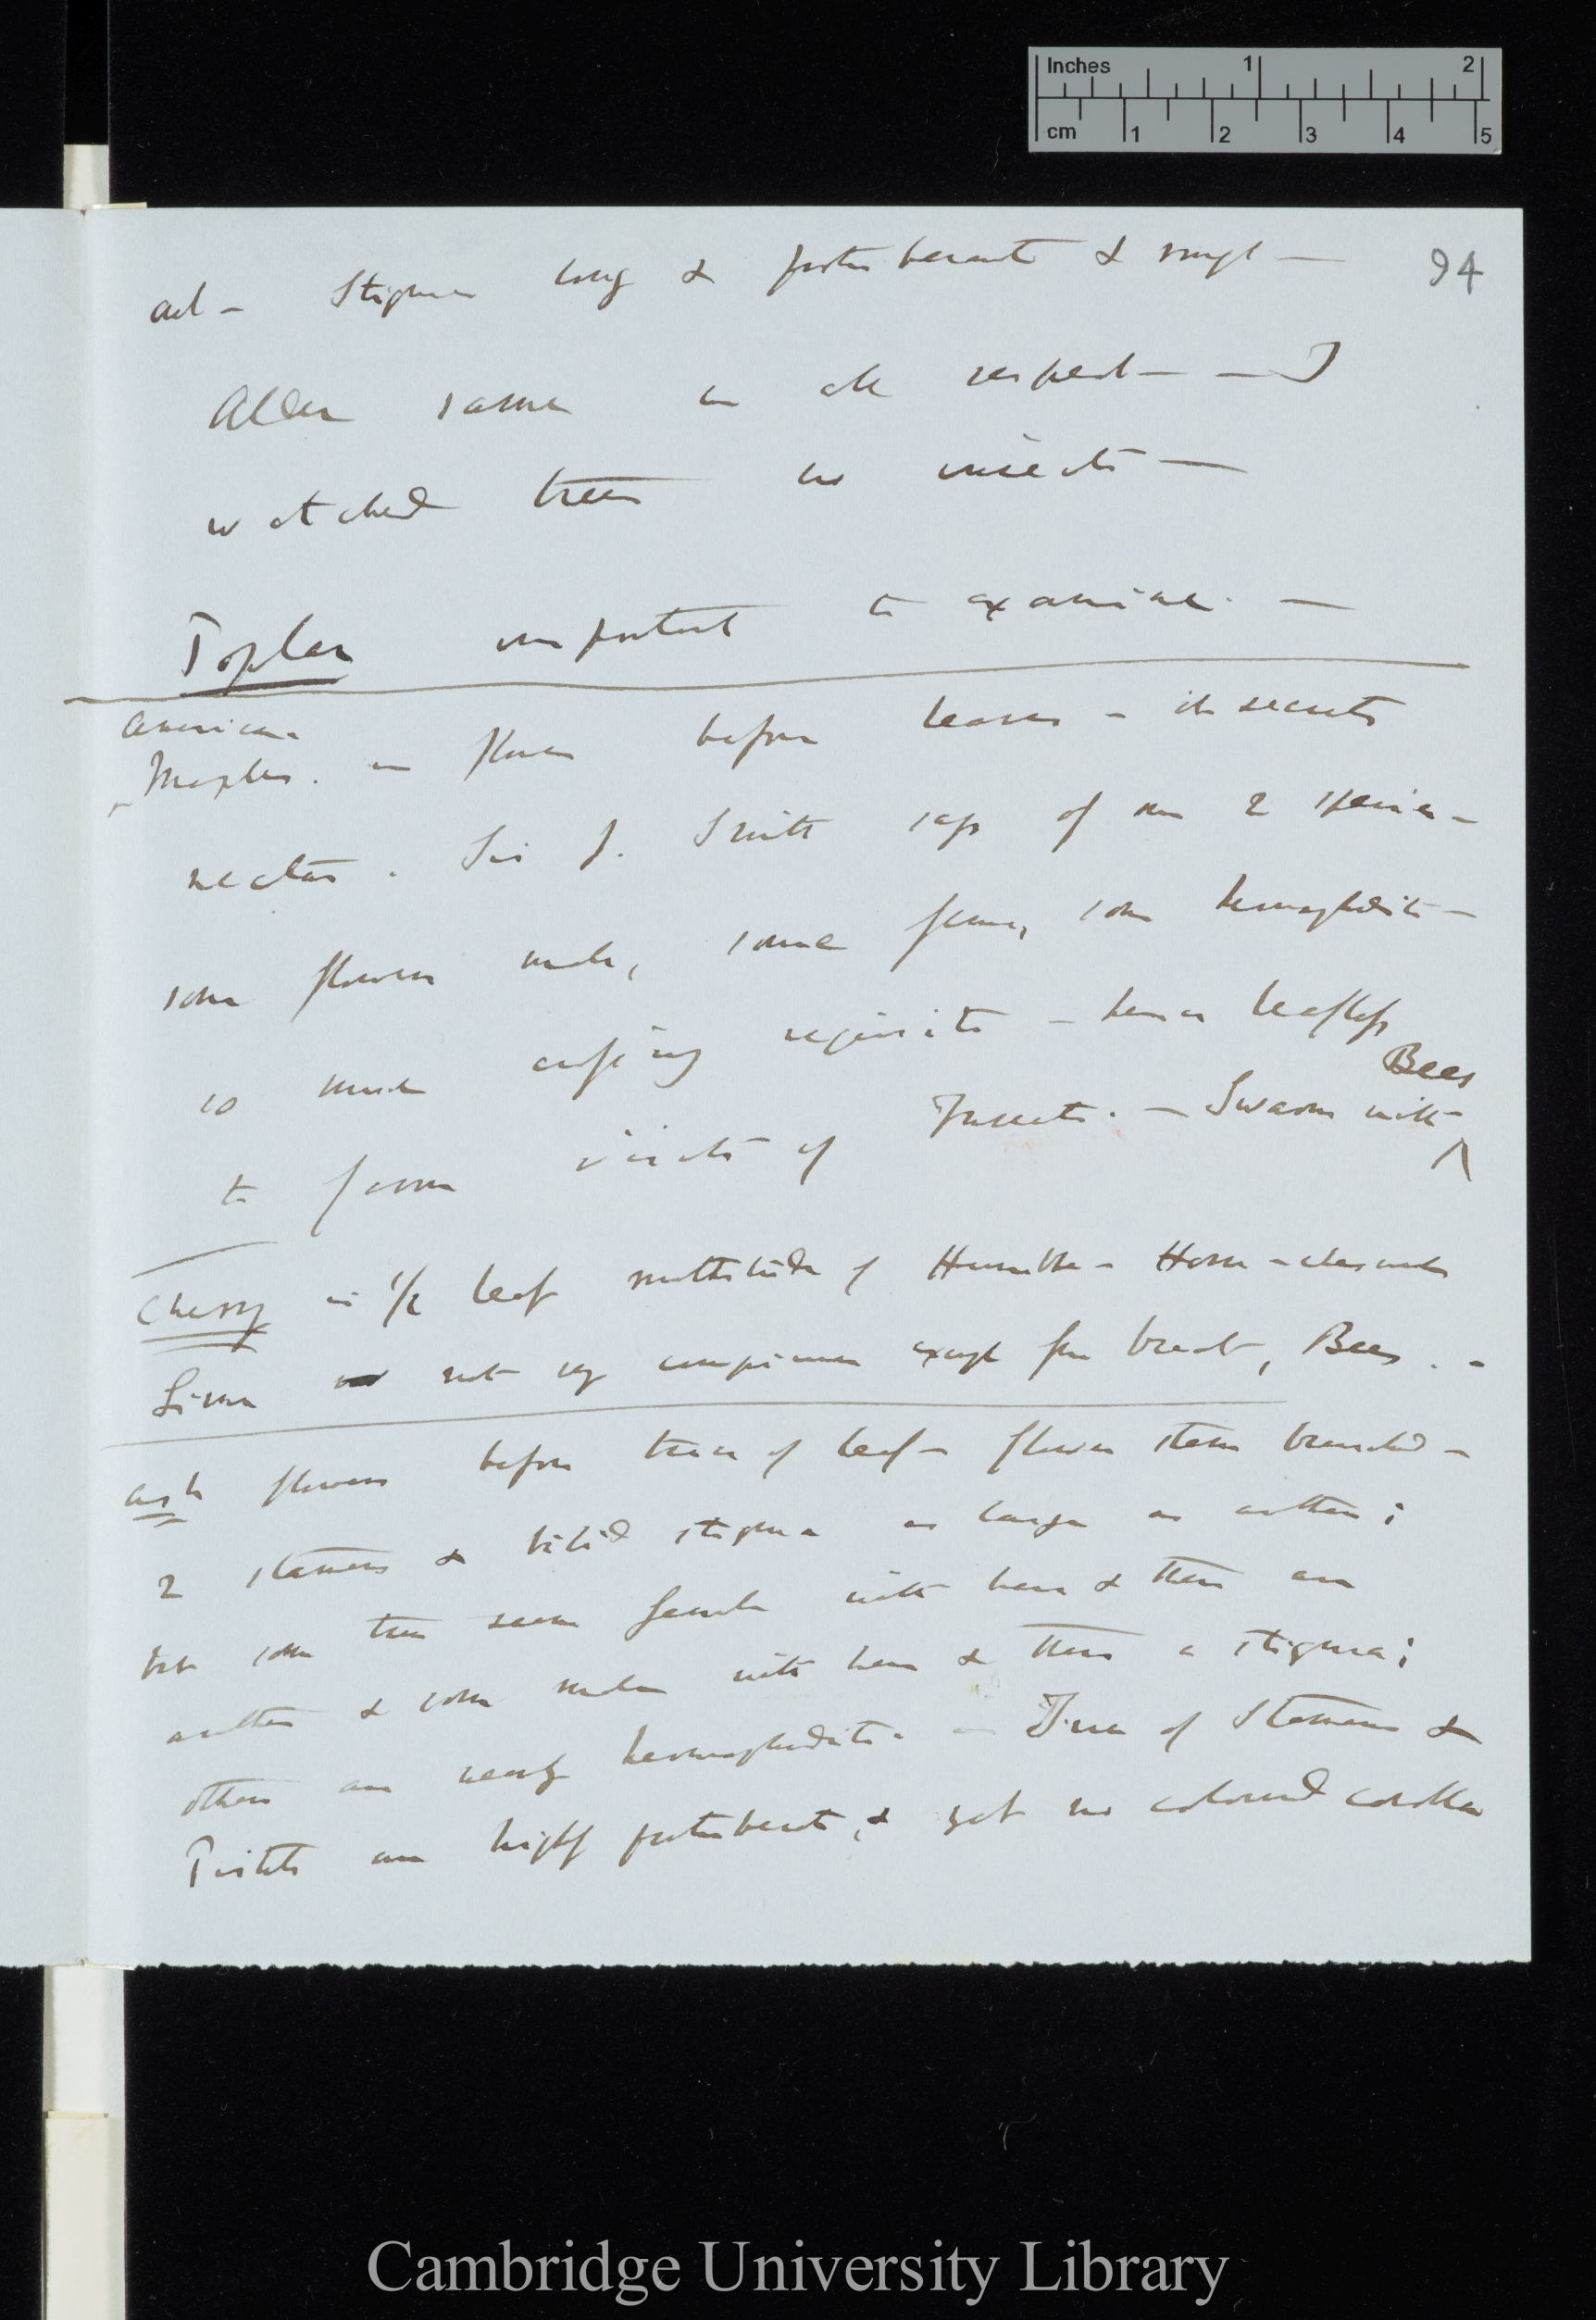 Inches 1 2
cm 1 2 3 4 5
94
and — Stigma long & protuberant & rough —
Alder same in all respects — I
watched trees no insects —
Poplar important to examine. —
American
Maples. in flower before leaves – it secretes
nectar. Sir J. Smith says of one 2 species –
some flowers male, some female, some hermaphrodite —
so much crossing requisite – hence leafless
Bees
to favour visits of Insects. — Swarm with
Cherry in 1/2 leaf multitude of Humble –
Lime not very conspicuous except for bracts, Bees. –
Ash flowers before trace of leaf – flower stem branched –
2 stamens & bifid stigma as large as anther;
but some trees seem female with here & there an
anther & some male with here & there a stigma;
others are nearly hermaphrodite. – of Stamens &
Pistils are highly protuberant, & yet no coloured corolla
Cambridge University Library